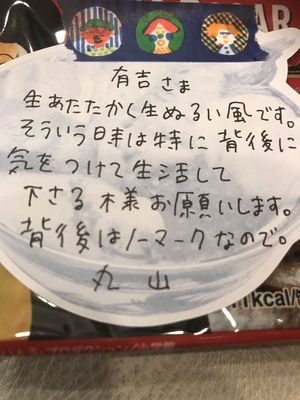 有吉さま
生あたたかく生ぬるい風です。
そういう日本は特に背後に
気をつけて生活して
下さる様お願いします。
背後はノーマークなので。
丸山
kcal/
プロダクション/小学館